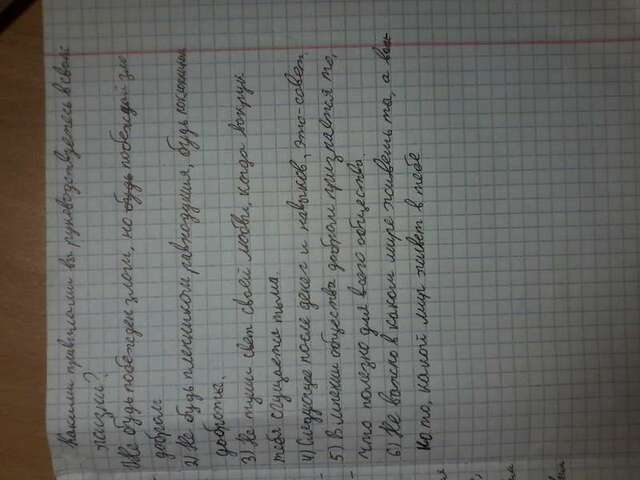 Какими правилами вы руководствуетесь в своей
жизни?
1) Не будь побежден злом, но будь побеждай зло
добром
2) Не будь пленником равнодушия, будь поклонником
доброты.
3) Не туши свет своей любви, когда вокруг
тебя сгущается тьма.
4) Следующее после денег и навыков, это-совет.
5) В мнении общества добром признается то,
что полезно для всего общества.
6) Не важно в каком мире живешь ты, а важ
но то, какой мир живет в тебе